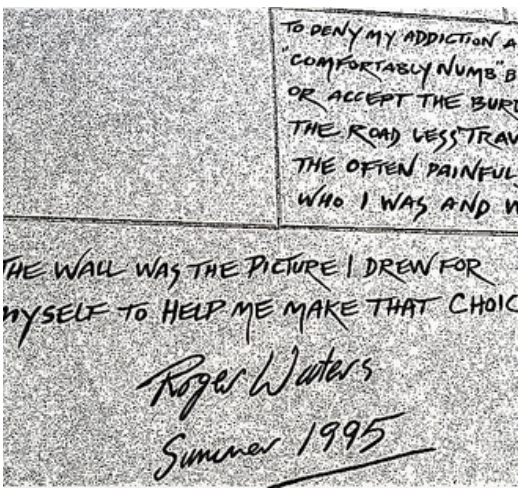 TO DENY MY ADDICTION A
"COMFORTABLY NUMB" B
OR ACCEPT THE BURD
THE ROAD LESS TRAV
THE OFTEN PAINFUL
WHO I WAS AND W
THE WALL WAS THE PICTURE I DREW FOR
MYSELF TO HELP ME MAKE THAT CHOIC
Roger Waters
Summer 1995